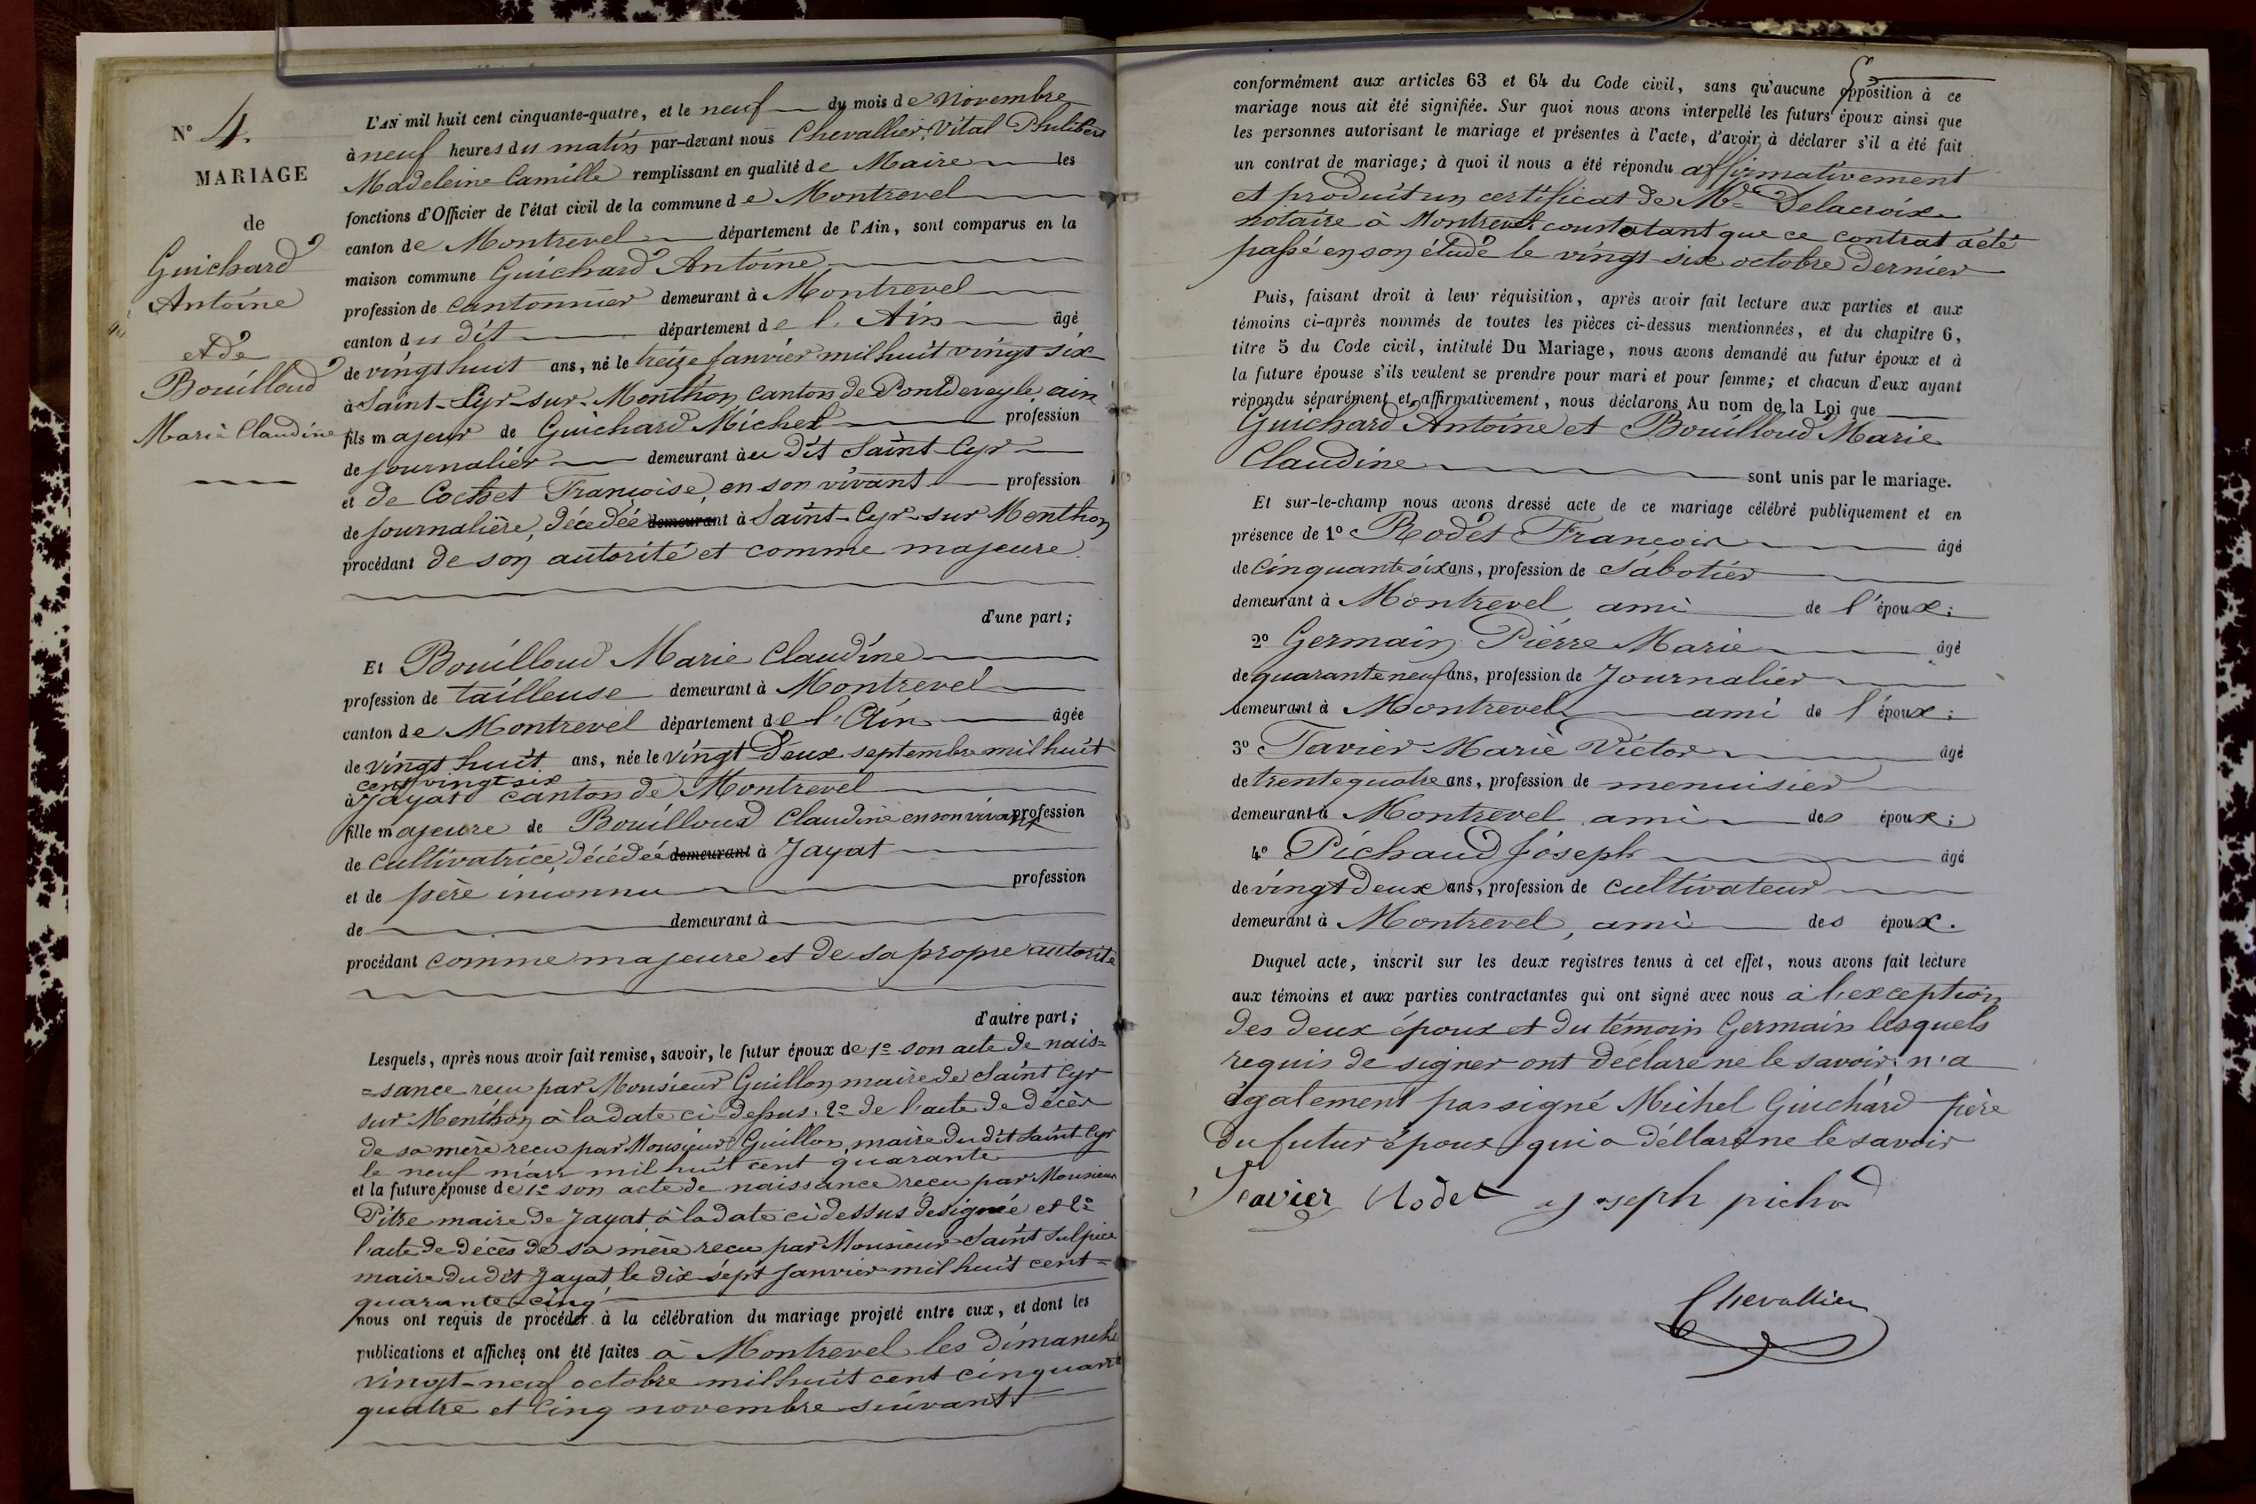 N° 4.
MARIAGE
de
Guichard
Antoine
et de
Bouilloud
Marie Claudine
L'AN mil huit cent cinquante-quatre, et le neuf du mois de Novembre
à neuf heures du matin par-devant nous Chevallier, Vital Philibert
Madeleine Camille remplissant en qualité de Maire les
fonctions d'Officier de l'état civil de la commune de Montrevel
canton de Montrevel département de l'Ain, sont comparus en la
maison commune Guichard Antoine
profession de cantonnier demeurant à Montrevel
canton du dit département de l'Ain âgé
de vingt huit ans, né le treize Janvier mil huit vingt six
à Saint-Cyr-sur-Menthon canton de Pont de veyle ain
fils majeur de Guichard Michel profession
de journalier demeurant au dit Saint-Cyr
et de Cochet Françoise, en son vivant profession
de journalière, décédée demeurant à Saint-Cyr-sur Menthon
procédant de son autorité et comme majeure
d'une part;
Et Bouilloud Marie Claudine
profession de tailleuse demeurant à Montrevel
canton de Montrevel département de l'Ain âgée
de vingt huit ans, née le vingt-deux septembre mil huit
cent vingt six
à Jayat canton de Montrevel
fille majeure de Bouilloud Claudine en son vivant profession
de cultivatrice, décédée demeurant à Jayat
et de père inconnu profession
de demeurant à
procédant comme majeure et de sa propre autorité
d'autre part;
Lesquels, après nous avoir fait remise, savoir, le futur époux de 1° son acte de nais=
=sance reçu par Monsieur Guillon maire de Saint Cyr
sur Menthon à la date ci-dessus. 2° de l'acte de décès
de sa mère reçu par Monsieur Guillon, maire du dit Saint Cyr
le neuf mars mil huit cent quarante
et la future épouse de 1° son acte de naissance reçu par Monsieur
Pitre maire de Jayat à la date ci dessus designée et 2°
l'acte de décès de sa mère reçu par Monsieur Saint Sulpice
maire du dit Jayat le dix-sept Janvier mil huit cent=
quarante-cinq
nous ont requis de procéder à la célébration du mariage projeté entre eux, et dont les
publications et affiches ont été faites à Montrevel les dimanche
vingt-neuf octobre mil huit cent cinquante
quatre et cinq novembre suivant
conformément aux articles 63 et 64 du Code civil, sans qu'aucune opposition à ce
mariage nous ait été signifiée. Sur quoi nous avons interpellé les futurs époux ainsi que
les personnes autorisant le mariage et présentes à l'acte, d'avoir à déclarer s'il a été fait
un contrat de mariage; à quoi il nous a été répondu affirmativement
et produit un certificat de Me Delacroix
notaire à Montrevel constatant que ce contrat a été
passé en son étude le vingt-six octobre dernier
Puis, faisant droit à leur réquisition, après avoir fait lecture aux parties et aux
témoins ci-après nommés de toutes les pièces ci-dessus mentionnées, et du chapitre 6,
titre 5 du Code civil, intitulé Du Mariage, nous avons demandé au futur époux et à
la future épouse s'ils veulent se prendre pour mari et pour femme; et chacun d'eux ayant
répondu séparément et affirmativement, nous déclarons Au nom de la Loi que
Guichard Antoine et Bouilloud Marie
Claudine sont unis par le mariage.
Et sur-le-champ nous avons dressé acte de ce mariage célébré publiquement et en
présence de 1° Rodet François âgé
de cinquante six ans, profession de Sabotier
demeurant à Montrevel ami de l'époux;
2° Germain Pierre Marie âgé
de quarante neuf ans, profession de Journalier
demeurant à Montrevel ami de l'époux;
3° Tavier Marie Victor âgé
de trente quatre ans, profession de menuisier
demeurant à Montrevel ami des époux;
4° Pichaud Joseph âgé
de vingt deux ans, profession de cultivateur
demeurant à Montrevel, ami des époux.
Duquel acte, inscrit sur les deux registres tenus à cet effet, nous avons fait lecture
aux témoins et aux parties contractantes qui ont signé avec nous à l'exception
des deux époux et du témoin Germain lesquels
requis de signer ont déclaré ne le savoir. n'a
également pas signé Michel Guichard père
du futur époux qui a déclaré ne le savoir
Tavier Rodet Joseph picho
Chevallier